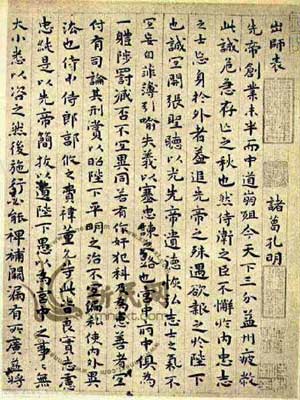 出師表
諸葛孔明
先帝創業未半而中道崩殂今天下三分益州疲敝
此誠危急存亡之秋也然侍衛之臣不懈於內忠志
之士忘身於外者蓋追先帝之殊遇欲報之於陛下
也誠宜開張聖聽以光先帝遺德恢弘志士之氣不
宜妄自菲薄引喻失義以塞忠諫之路也宮中府中俱為
一體陟罰臧否不宜異同若有作奸犯科及為忠善者宜
付有司論其刑賞以昭陛下平明之治不宜偏私使內外異
法也侍中侍郎郭攸之費禕董允等此皆良實志慮
忠純是以先帝簡拔以遺陛下愚以為宮中之事事無
大小悉以咨之然後施行必能裨補闕漏有所廣益將